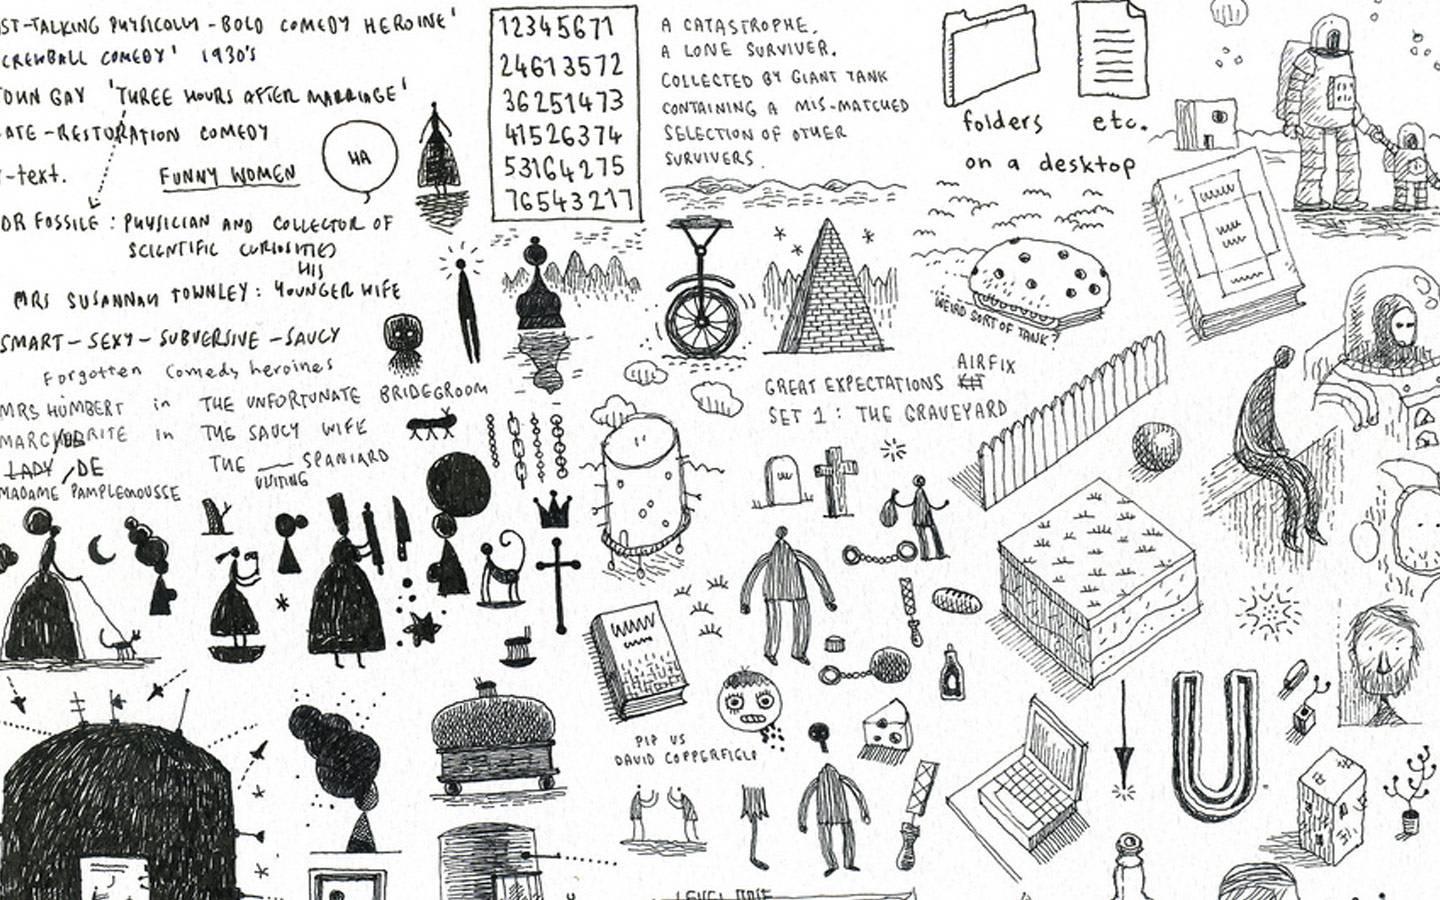 ST-TALKING PHYSICALLY-BOLD COMEDY HEROINE'
CREWBALL COMEDY' 1930'S
JOHN GAY 'THREE HOURS AFTER MARRIAGE'
ATE-RESTORATION COMEDY
-text.
FUNNY WOMEN
HA
DR FOSSILE: PHYSICIAN AND COLLECTOR OF
SCIENTIFIC CURIOSITIES
HIS
MRS SUSANNAH TOWNLEY: YOUNGER WIFE
SMART-SEXY-SUBVERSIVE-SAUCY
Forgotten Comedy heroines
MRS HUMBERT in THE UNFORTUNATE BRIDEGROOM
RITE in THE SAUCY WIFE
LADY DE
THE ___ SPANIARD
VISITING
MADAME PAMPLEMOUSSE
12345671
24613572
36251473
41526374
53164275
76543217
A CATASTROPHE.
A LONE SURVIVER.
COLLECTED BY GIANT TANK
CONTAINING A MIS-MATCHED
SELECTION OF OTHER
SURVIVERS.
folders etc.
on a desktop
WEIRD SORT OF TANK?
AIRFIX
GREAT EXPECTATIONS KIT
SET 1: THE GRAVEYARD
PIP VS
DAVID COPPERFIELD
U